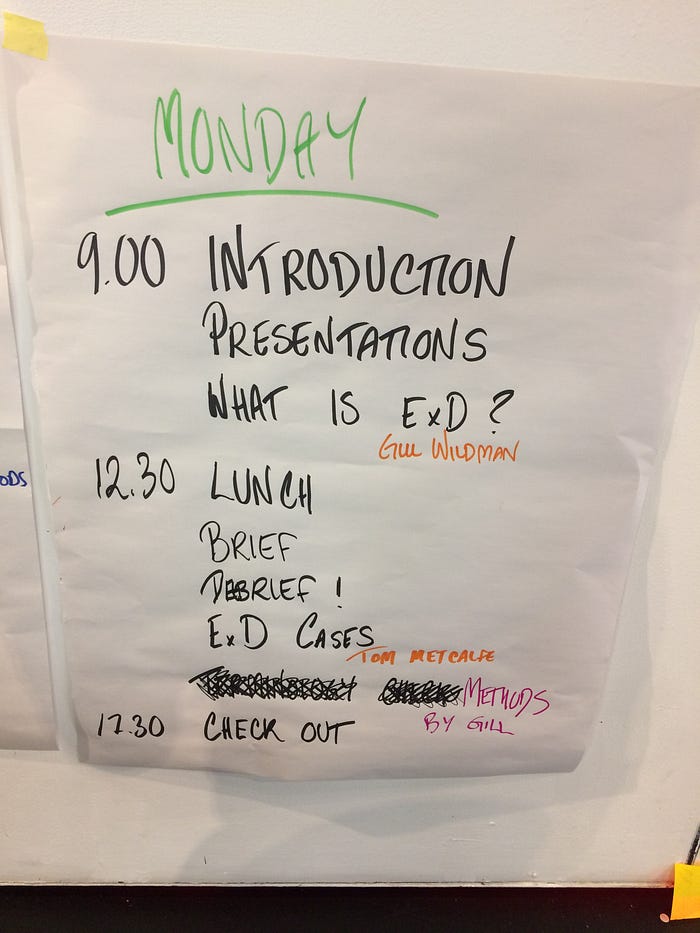 MONDAY
9.00 INTRODUCTION
PRESENTATIONS
WHAT IS ExD ?
GILL WILDMAN
12.30 LUNCH
BRIEF
DEBRIEF !
ExD CASES
TOM METCALFE
METHODS
BY GILL
17.30 CHECK OUT
ODS